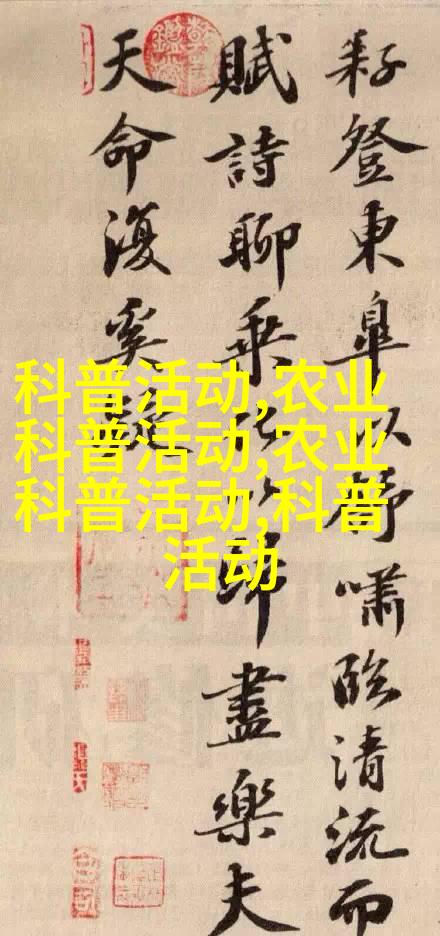 耔登東皋以舒嘯臨清流而
賦詩聊乘化以歸盡樂夫
天命復奚疑
科普活动,农业
科普活动,农业
科普活动,科普
活动